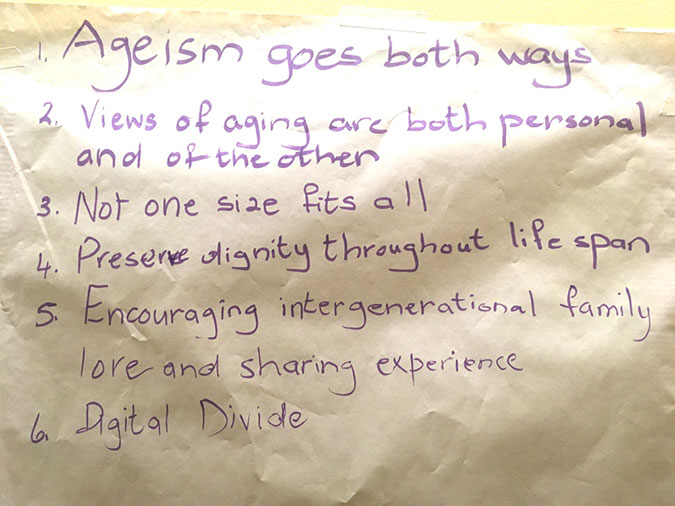 1. Ageism goes both ways
2. Views of aging are both personal
and of the other
3. Not one size fits all
4. Preserve dignity throughout life span
5. Encouraging intergenerational family
lore and sharing experience
6. Digital Divide